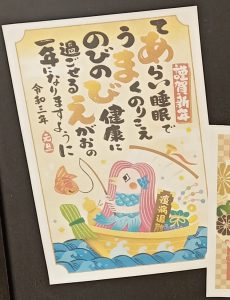 謹賀新年
てあらい睡眠で
うまくのりこえ
のびのび健康に
えがおの
過ごせる
一年になりますように
令和三年 元旦
疫病退散